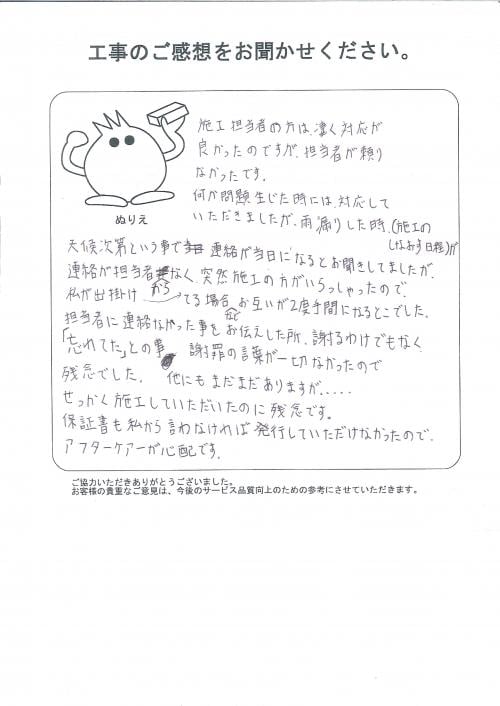 工事のご感想をお聞かせください。
施工担当者の方は、凄く対応が
良かったのですが、担当者が頼り
なかったです。
何か問題生じた時には、対応して
いただきましたが、雨漏りした時、(施工の
しなおす日程)が
ぬりえ
天候次第という事で 連絡が当日になるとお聞きしてましたが、
連絡が担当者なく、突然施工の方がいらっしゃったので、
私が出掛けからてる場合、お互いが2度手間になるとこでした。
担当者に連絡なかった事などをお伝えした所、謝るわけでもなく
「忘れてた」との事 謝罪の言葉が一切なかったので
残念でした。 他にもまだまだありますが.....
せっかく施工していただいたのに残念です。
保証書も私から言わなければ発行していただけなかったので、
アフターケアーが心配です。
ご協力いただきありがとうございました。
お客様の貴重なご意見は、今後のサービス品質向上のための参考にさせていただきます。